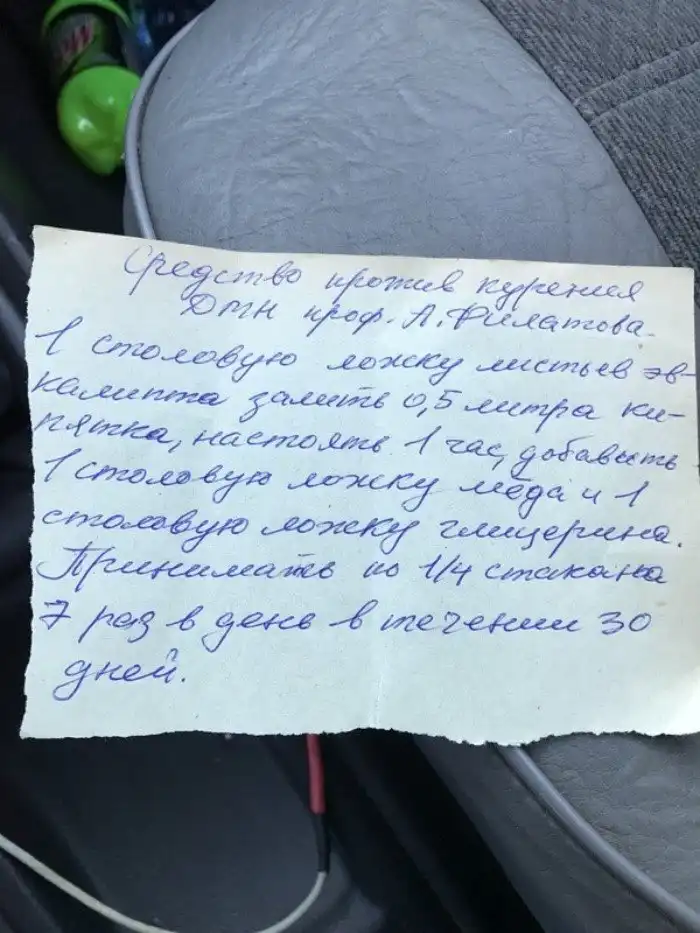 Средство против курения
ДМН проф. А. Филатова
1 столовую ложку листьев эв-
калипта залить 0,5 литра ки-
пятка, настоять 1 час, добавыть
1 столовую ложку мёда и 1
столовую ложку глицерина.
Принимать по 1/4 стакана
7 раз в день в течении 30
дней.